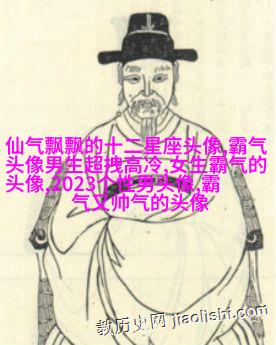 仙气飘飘的十二星座头像,霸气
头像男生超拽高冷,女生霸气的
头像,2023个性男头像,霸
气又帅气的头像
教历史网 jiaolishi.com